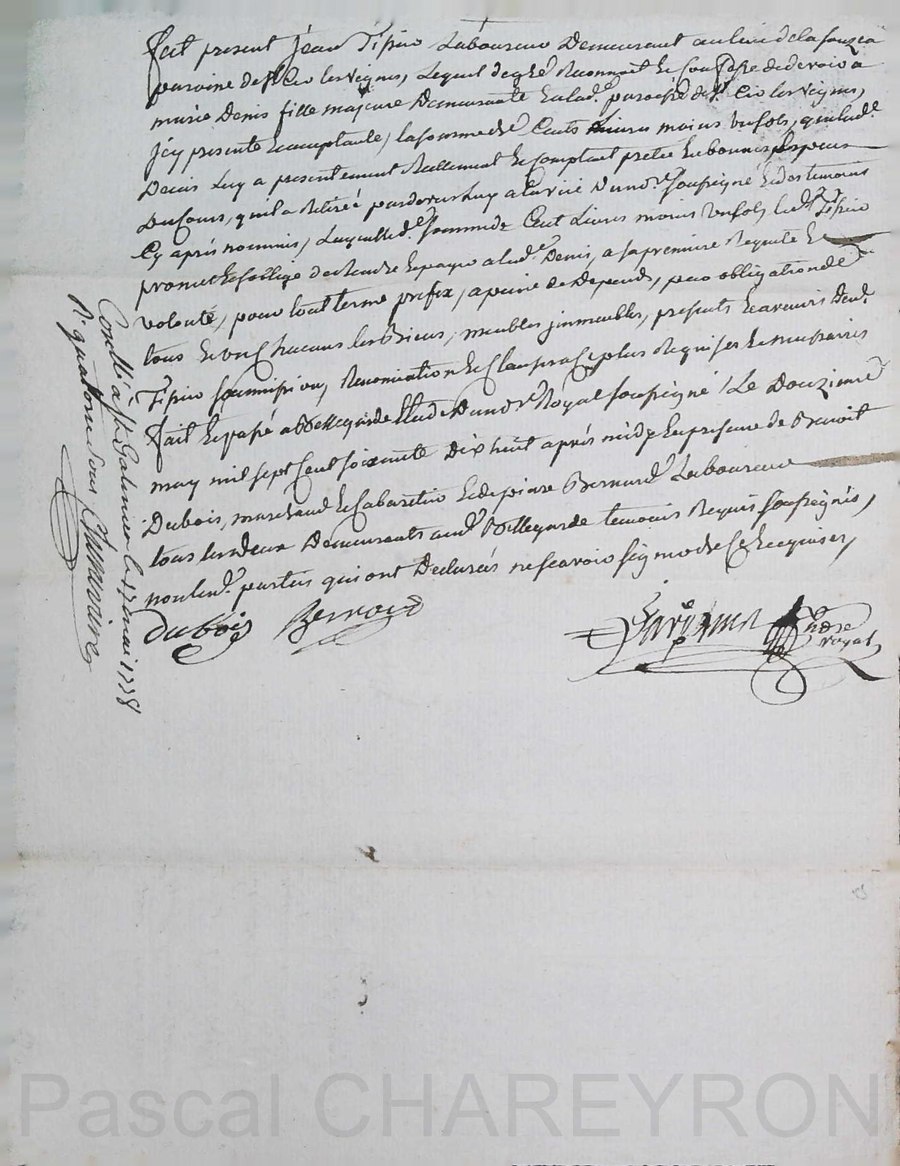 fut present jean Tissier Laboureur Demeurant au lieu de la
paroisse de St Cir les vignes, Lequel de gré Reconnait et Confesse de devoir a
marie Denis fille majeure Demeurante en lad.e paroisse de St Cir les vignes,
jcy presente acceptante, la somme de Cents Livres moins un sols, que lad.e
Denis Luy a presentement Réellement et Comptant pretée En bonnes Especes
Du Cours, qu'il a Retirée pardevers luy a la vüe Du not.re soussigné et des temoins
Cy aprés nommés, Laquelle d.e somme de Cent Livres moins un sols, led.t Tissier
promet et s'oblige de rendre et payer a lad.e Denis, a sa premiere Requete et
volonté, pour tout terme prefix, a peine de Depends, par obligation de
tous et un Chacuns ses Biens, meubles jmmeubles, presents et avenirs dud.t
Tissier soumission, Renonciation et Clauses plus Requises et necessaires
fait et passé a Bellegarde Etude Du not.re Royal soussigné Le Douzieme
may mil sept Cent soixante Dix huit aprés midy En presence de Benoit
Dubois, marchand et Cabaretier et de pierre Bernard Laboureur
tous les deux Demeurants aud.t Bellegarde temoins Requis soussignés,
non led.s parties qui ont Declarés ne scavoir signer de ce Requises,
Dubois Bernard
n.re royal
Conllé a St Galmier le 17 mai 1778
R. quatorze sous
Pascal CHAREYRON